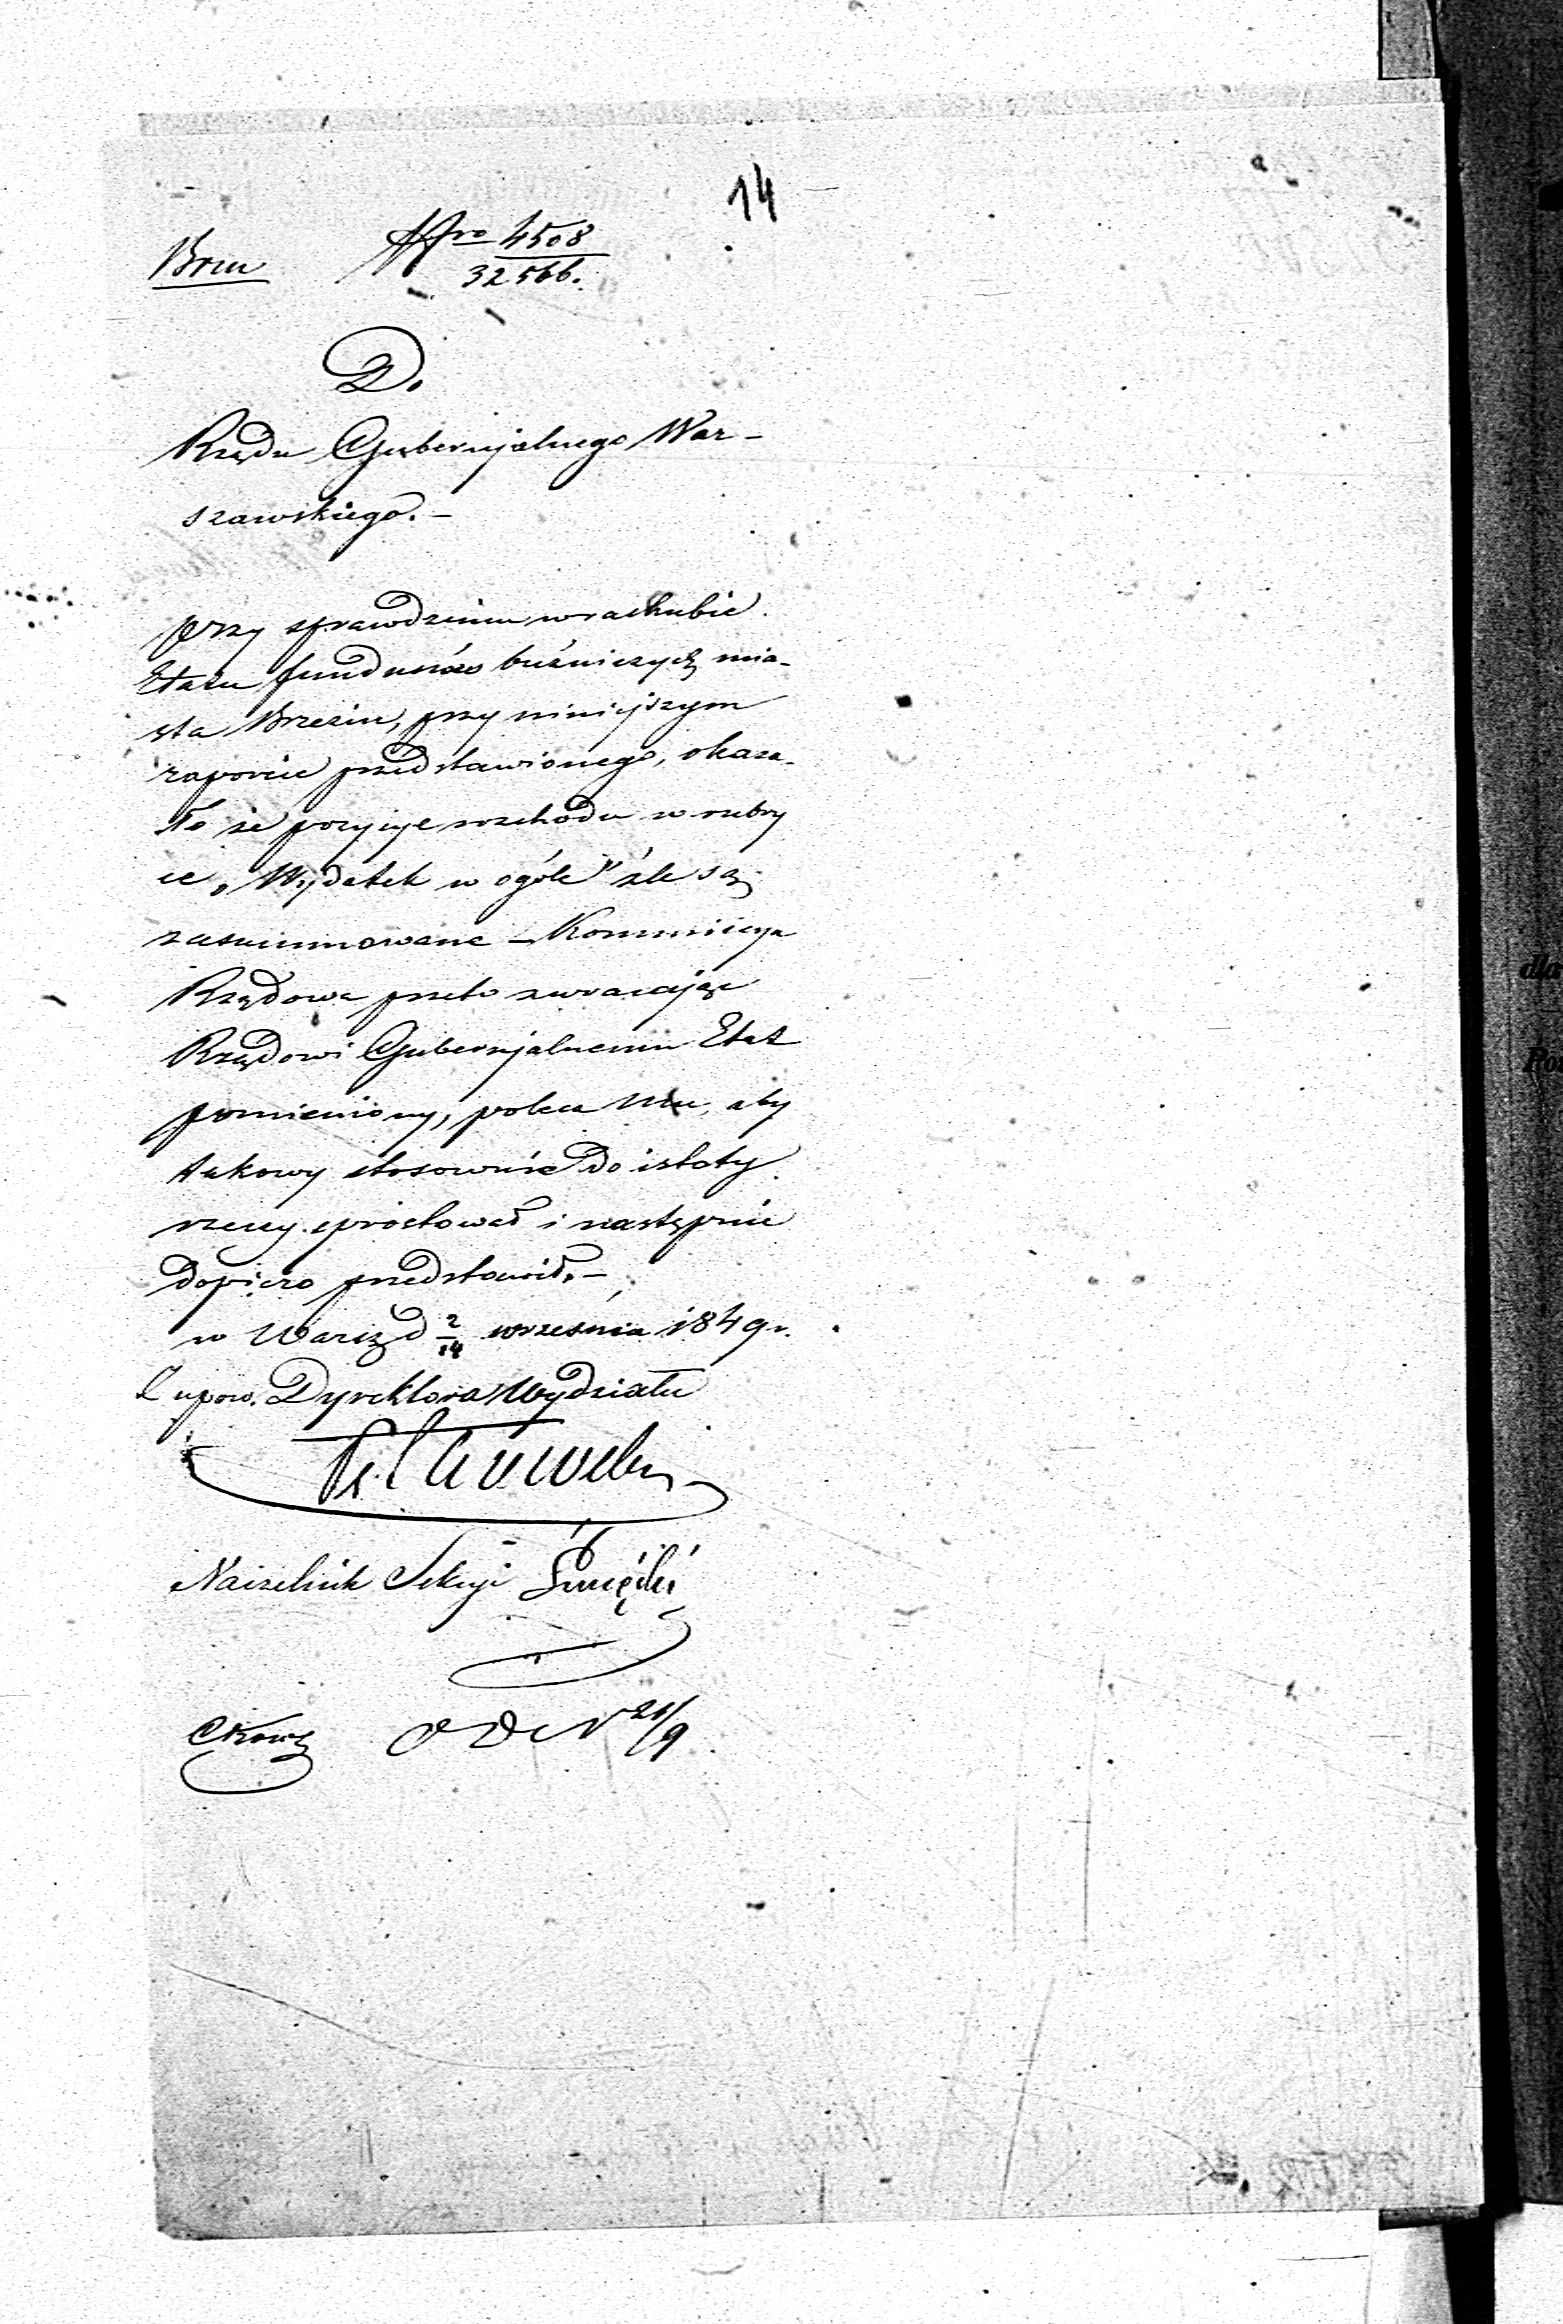 14
Brzu Nro 4508
32566.
Do
Rządu Gubernjalnego War-
szawskiego.-
przy sprawdzeniu w rachubie
Etatu funduszów bużniczych mia-
sta Brzezin, przy niniejszym
raporcie przedstawionego, okaza-
ło że pozycye rozchodu w rubry
ce „Wydatek w ogóle" źle są
zasummowane - Kommissya
Rządowa przeto zwracając
Rządowi Gubernjalnemu Etat
pomieniony, poleca Mu, aby
takowy stosownie do istoty
rzeczy sprostował i następnie
dopiero przedstawił.-
w Warsz d 2/14 września 1849 r.
Z upow. Dyrektora Wydziału
Naczelnik Sekcji
21/9
dla